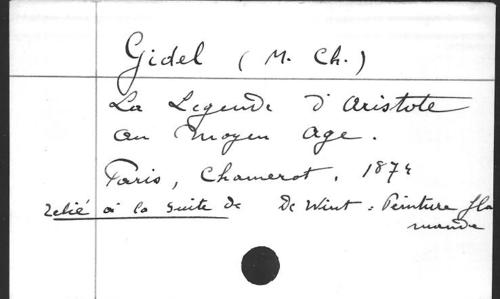 Gidel (M. Ch.)
La Legende d'Aristote
au moyen age.
Paris, Chamerot, 1874
relié à la suite de De Wint : Peinture fla
mande